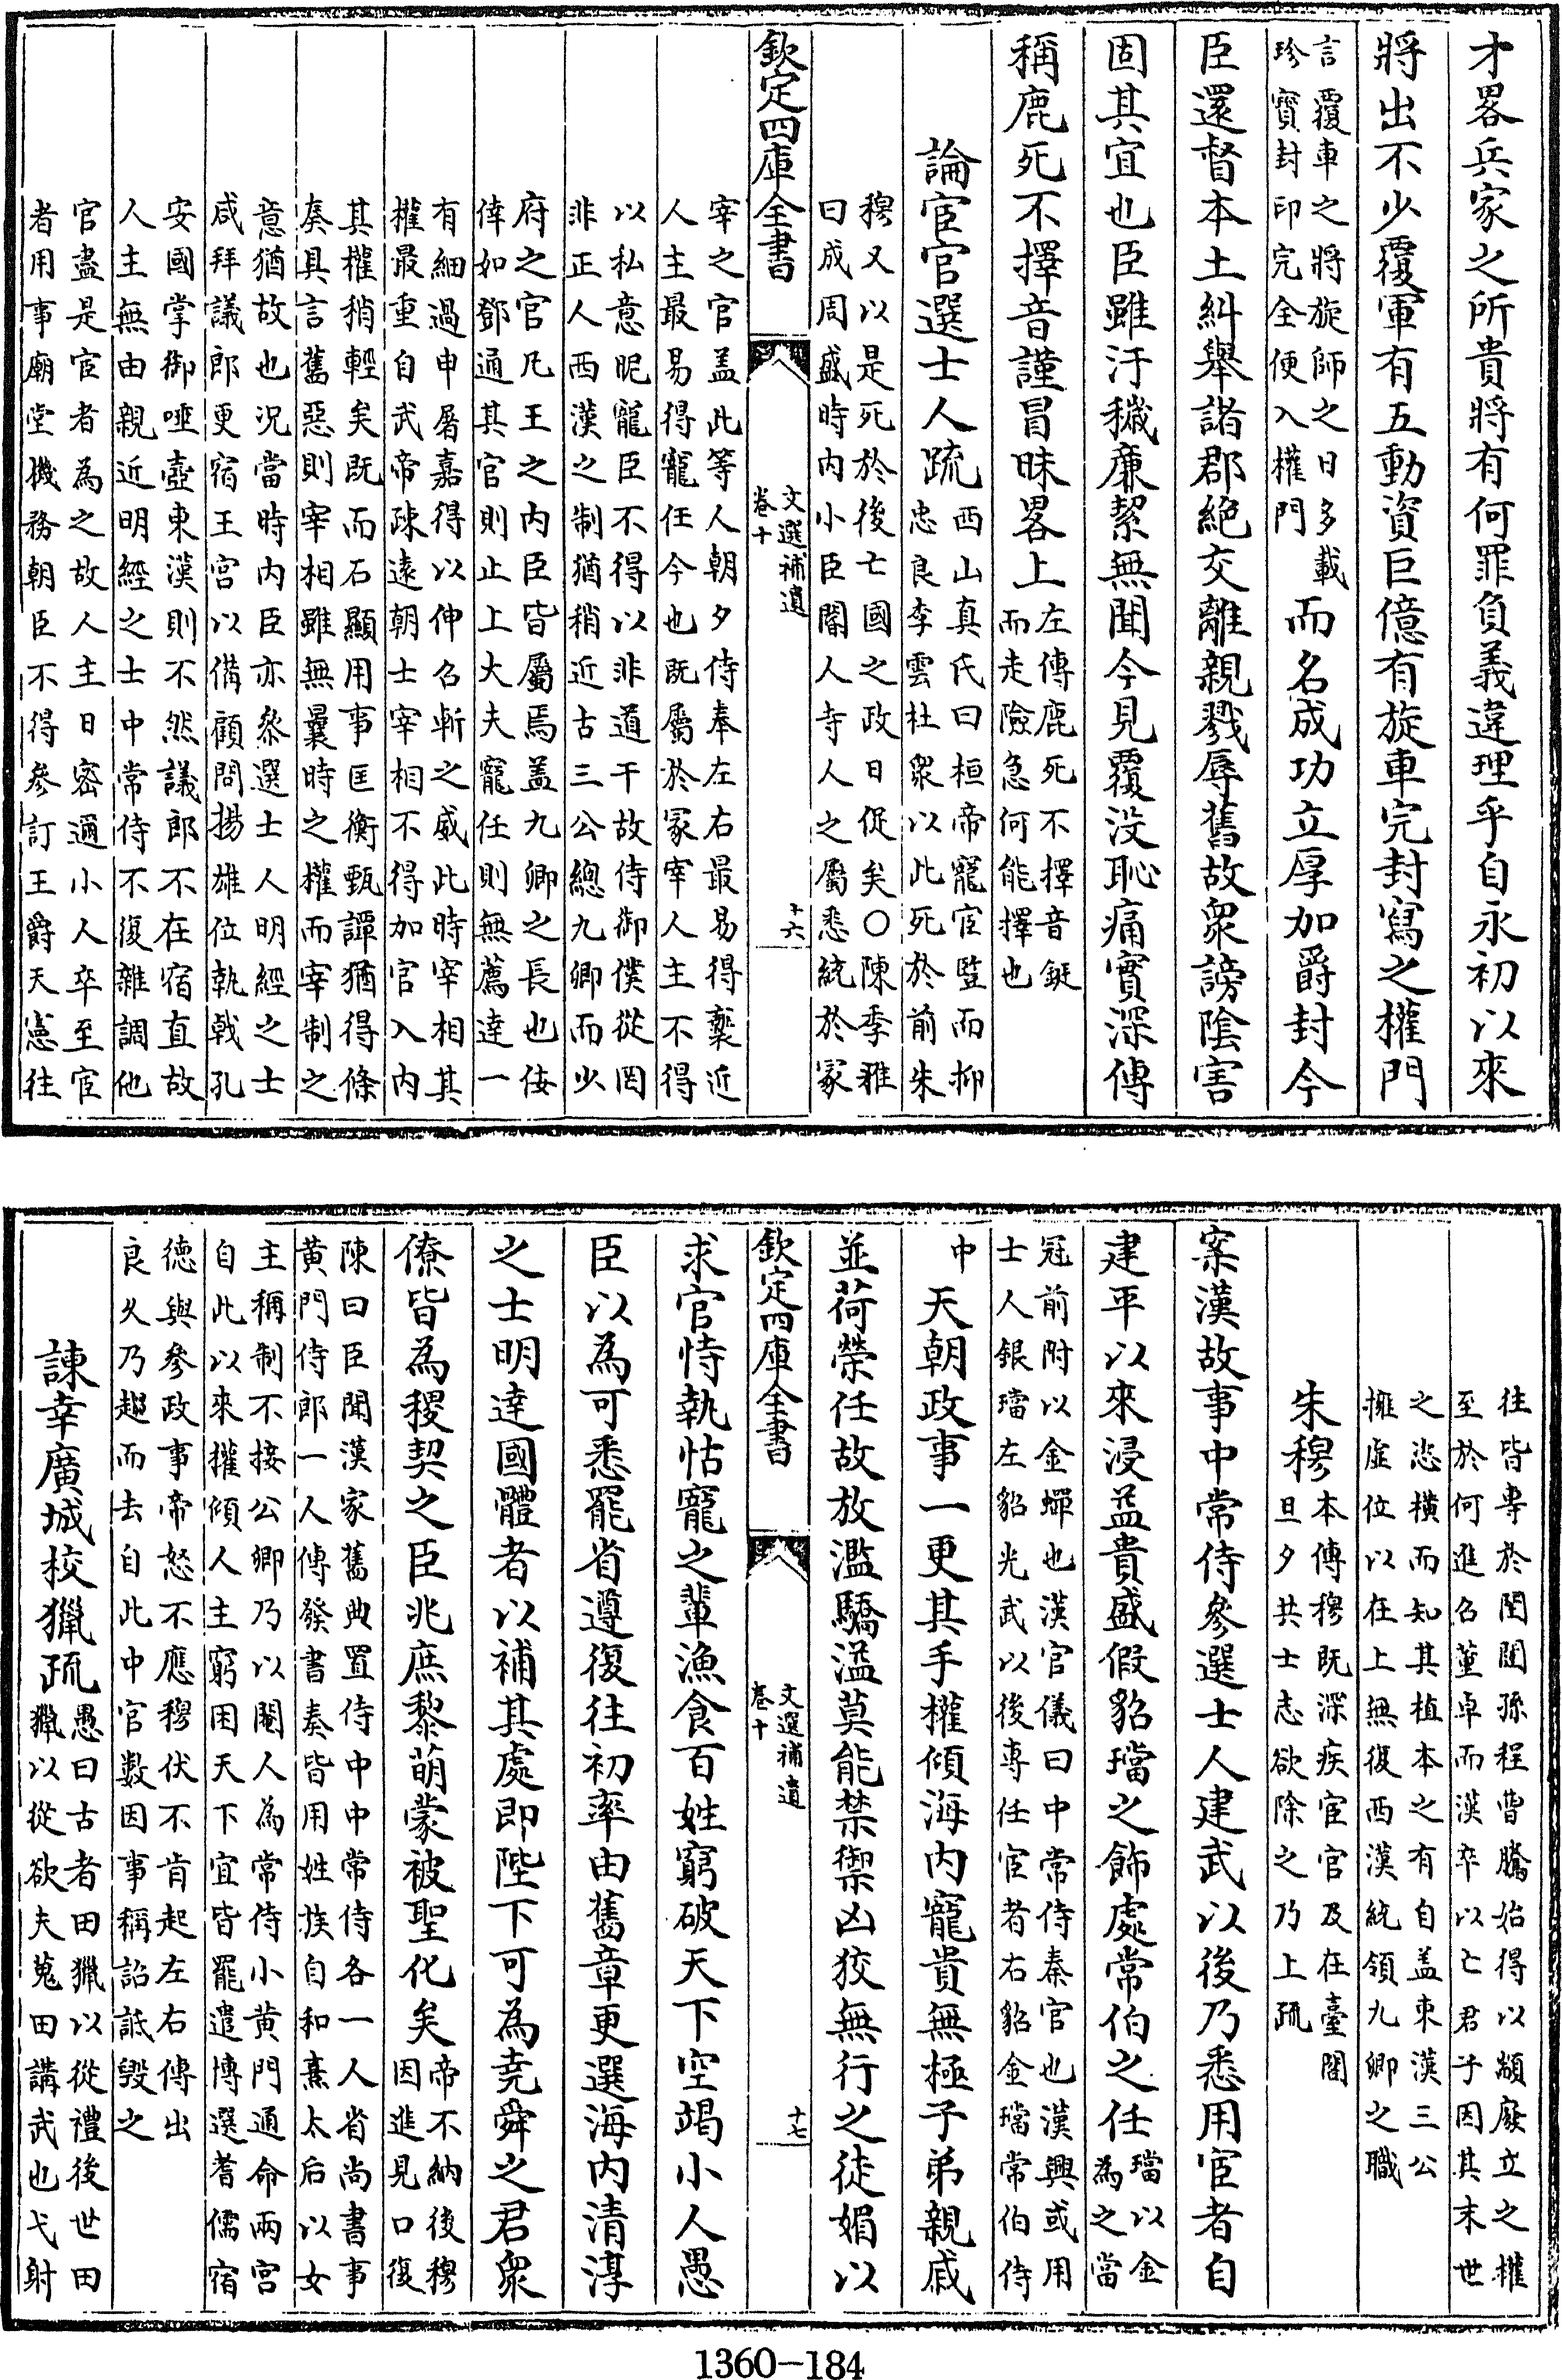 才畧兵家之所貴將有何罪負義違理乎自永初以來
將出不少覆軍有五動資巨億有旋車完封寫之權門
言覆車之將旋師之日多載
珍寳封印完全便入權門
而名成功立厚加爵封今
臣還督本土糾舉諸郡絶交離親戮辱舊故衆謗隂害
固其宜也臣雖汙穢廉絜無聞今見覆没恥痛實深傳
稱鹿死不擇音謹冒昧畧上
左傳鹿死不擇音鋌
而走險急何能擇也
論宦官選士人疏
西山真氏曰桓帝寵宦豎而抑
忠良李雲杜衆以此死於前朱
穆又以是死於後亡國之政日促矣○陳季雅
曰成周盛時内小臣閽人寺人之屬悉統於冡
欽定四庫全書
文選補遺
卷十
十六
宰之官盖此等人朝夕侍奉左右最易得褻近
人主最易得寵任今也既屬於冡宰人主不得
以私意昵寵臣不得以非道干故侍御僕從罔
非正人西漢之制猶稍近古三公總九卿而少
府之官凡王之内臣皆屬焉盖九卿之長也佞
倖如鄧通其官則止上大夫寵任則無薦達一
有細過申屠嘉得以伸召斬之威此時宰相其
權最重自武帝疎逺朝士宰相不得加官入内
其權稍輕矣既而石顯用事匡衡甄譚猶得條
奏具言舊惡則宰相雖無曩時之權而宰制之
意猶故也況當時内臣亦叅選士人明經之士
咸拜議郎更宿王宫以備顧問揚雄位執戟孔
安國掌御唾壺東漢則不然議郎不在宿直故
人主無由親近明經之士中常侍不復雜調他
官盡是宦者為之故人主日密邇小人卒至宦
者用事廟堂機務朝臣不得參訂王爵天憲往
往皆専於閨闥孫程曹騰始得以顓廢立之權
至於何進召董卓而漢卒以亡君子因其末世
之恣横而知其植本之有自盖東漢三公
擁虚位以在上無復西漢統領九卿之職
朱穆
本傳穆既深疾宦官及在臺閣
旦夕共士志欲除之乃上疏
案漢故事中常侍參選士人建武以後乃悉用宦者自
建平以來浸益貴盛假貂璫之飾處常伯之任
璫以金
為之當
冠前附以金蟬也漢官儀曰中常侍秦官也漢興或用
士人銀璫左貂光武以後専任宦者右貂金璫常伯侍
中
天朝政事一更其手權傾海内寵貴無極子弟親戚
並荷榮任故放濫驕溢莫能禁禦凶狡無行之徒媚以
欽定四庫全書
文選補遺
卷十
十七
求官恃執怙寵之輩漁食百姓窮破天下空竭小人愚
臣以為可悉罷省遵復往初率由舊章更選海内清淳
之士明達國體者以補其處即陛下可為堯舜之君衆
僚皆為稷契之臣兆庶黎萌蒙被聖化矣
帝不納後穆
因進見口復
陳曰臣聞漢家舊典置侍中中常侍各一人省尚書事
黄門侍郎一人傳發書奏皆用姓族自和熹太后以女
主稱制不接公卿乃以閹人為常侍小黄門通命兩宫
自此以來權傾人主窮困天下宜皆罷遣博選耆儒宿
德與參政事帝怒不應穆伏不肯起左右傳出
良久乃趨而去自此中官數因事稱詔詆毁之
諫幸廣城校獵疏
愚曰古者田獵以從禮後世田
獵以從欲夫蒐田講武也弋射
1360-184